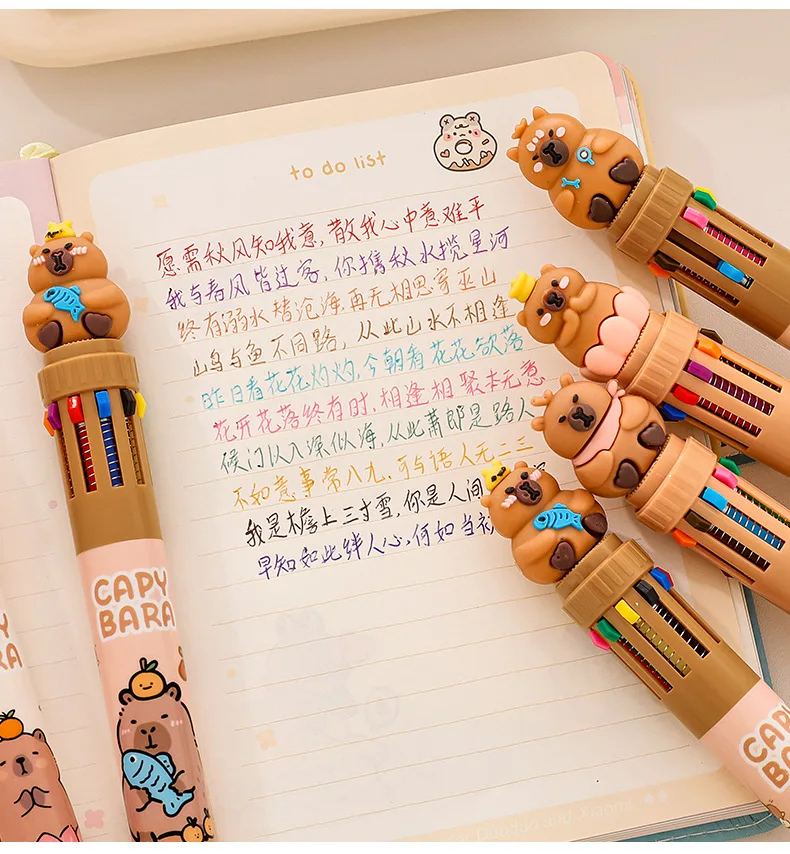 to do list
愿需秋风知我意,散我心中意难平
我与春风皆过客,你携秋水揽星河
终有弱水替沧海,再无相思寄巫山
山鸟与鱼不同路,从此山水不相逢
昨日看花花灼灼,今朝看花花欲落
花开花落终有时,相逢相聚本无意
候门以入深似海,从此萧郎是路人
不如意事常八九,可与语人无二三
我是檐上三寸雪,你是人间
早知如此绊人心,何如当初
CAPY
BARA
RA
CAP
BA